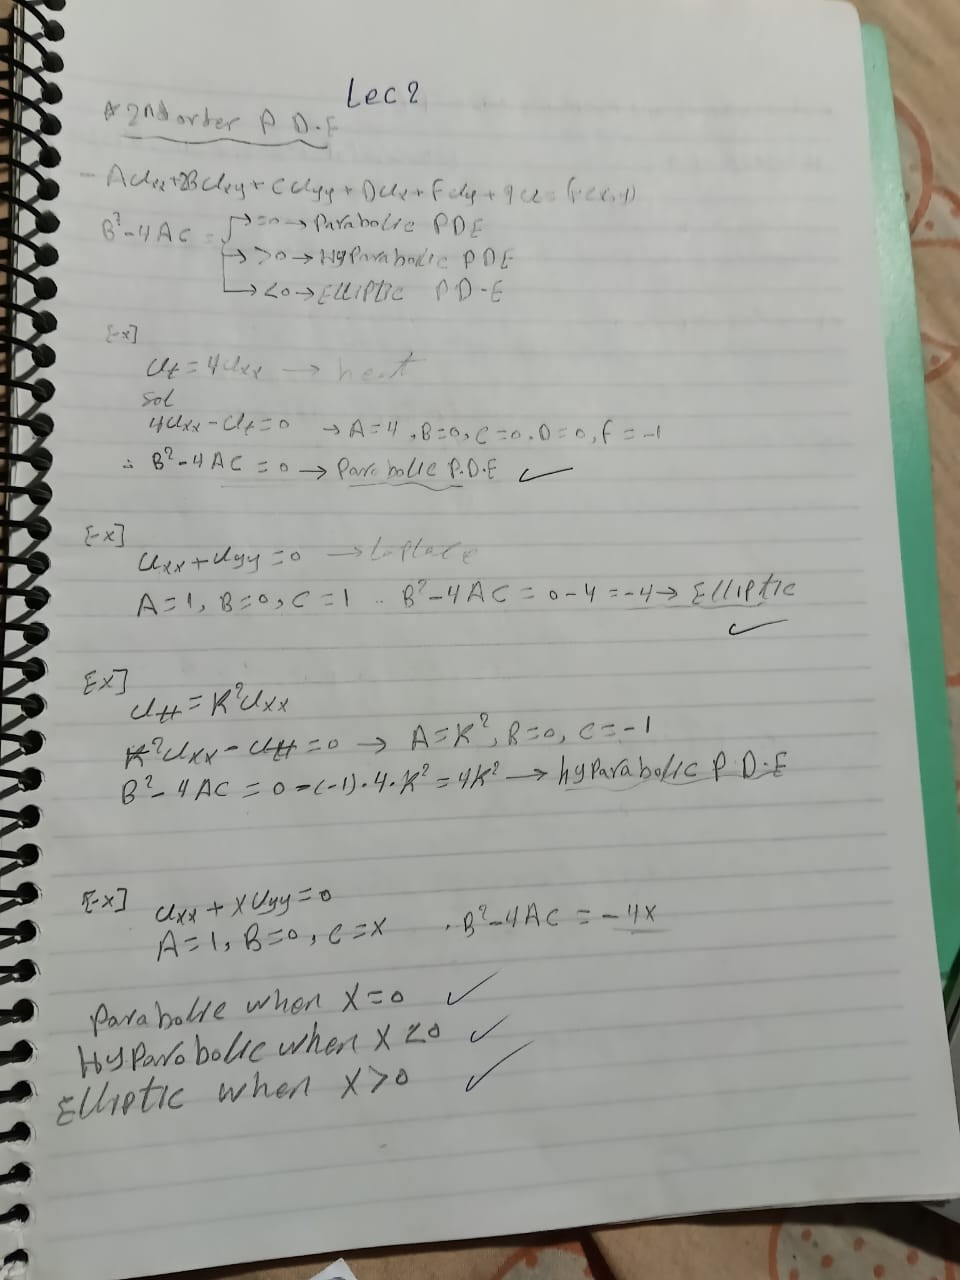 Lec 2
* 2nd orter P D.E
- AUxx+2BUxy+CUyy+DUx+FUy+gu=F(x,y)
B²-4AC = → =0 → Parabolic PDE
→ >0 → HyParabolic PDE
→ <0 → Elliptic PD-E
Ex]
Ut = 4Uxx → heat
Sol
4Uxx - Ut = 0 → A=4, B=0, C=0, D=0, F=-1
∴ B²-4AC = 0 → Parabolic P.D.E ✓
Ex]
Uxx + Uyy = 0 → Laplace
A=1, B=0, C=1 .. B²-4AC = 0-4 = -4 → Elliptic
✓
Ex]
Utt = K²Uxx
K²Uxx - Utt = 0 → A=K², B=0, C=-1
B²-4AC = 0-(-1).4.K² = 4K² → hyParabolic P D.E
Ex] Uxx + XUyy = 0
A=1, B=0, C=X . B²-4AC = -4X
Parabolic when X=0 ✓
HyParabolic when X<0 ✓
Elliptic when X>0 ✓